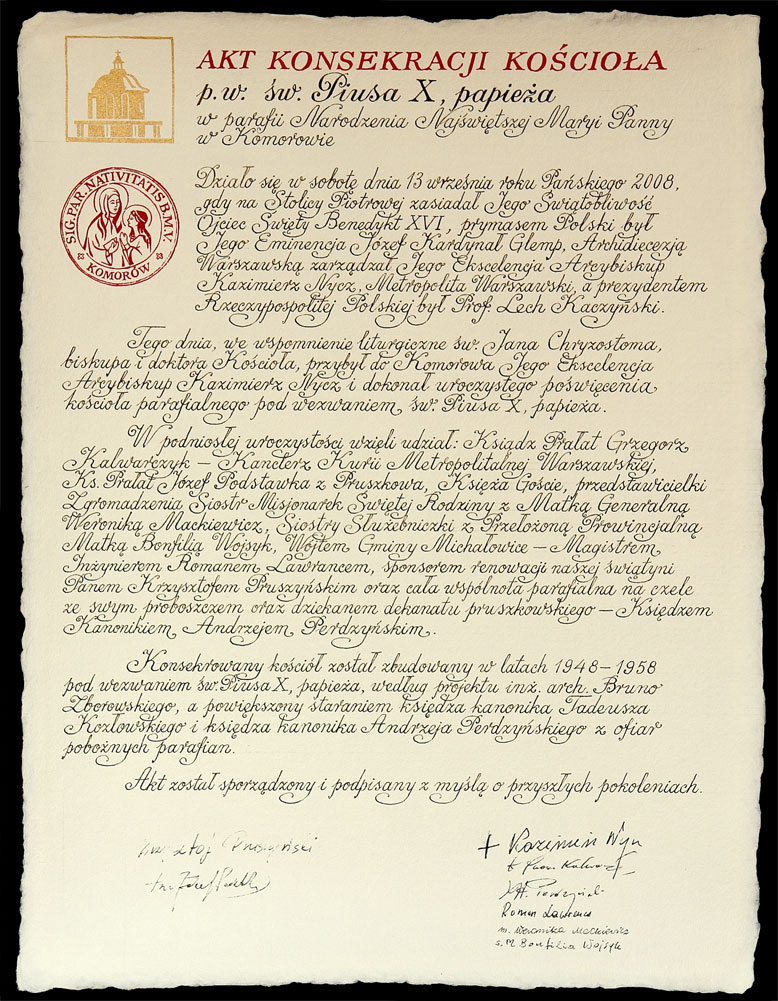 AKT KONSEKRACJI KOŚCIOŁA
p.w. św. Piusa X, papieża
w parafii Narodzenia Najświętszej Maryi Panny
w Komorowie
SIG. PAR. NATIVITATIS B.M.V.
KOMORÓW
Działo się w sobotę dnia 13 września roku Pańskiego 2008,
gdy na Stolicy Piotrowej zasiadał Jego Świątobliwość
Ojciec Święty Benedykt XVI, prymasem Polski był
Jego Eminencja Józef Kardynał Glemp, Archidiecezją
Warszawską zarządzał Jego Ekscelencja Arcybiskup
Kazimierz Nycz, Metropolita Warszawski, a prezydentem
Rzeczypospolitej Polskiej był Prof. Lech Kaczyński.
Tego dnia, we wspomnienie liturgiczne św. Jana Chryzostoma,
biskupa i doktora Kościoła, przybył do Komorowa Jego Ekscelencja
Arcybiskup Kazimierz Nycz i dokonał uroczystego poświęcenia
kościoła parafialnego pod wezwaniem św. Piusa X, papieża.
W podniosłej uroczystości wzięli udział: Ksiądz Prałat Grzegorz
Kalwarczyk – Kanclerz Kurii Metropolitalnej Warszawskiej,
Ks. Prałat Józef Podstawka z Pruszkowa, Księża Goście, przedstawicielki
Zgromadzenia Sióstr Misjonarek Świętej Rodziny z Matką Generalną
Weroniką Mackiewicz, Siostry Służebniczki z Przełożoną Prowincjalną
Matką Bonfilią Wojsyk, Wójtem Gminy Michałowice – Magistrem
Inżynierem Romanem Lawrancem, sponsorem renowacji naszej świątyni
Panem Krzysztofem Pruszyńskim oraz cała wspólnota parafialna na czele
ze swym proboszczem oraz dziekanem dekanatu pruszkowskiego – Księdzem
Kanonikiem Andrzejem Perdzyńskim.
Konsekrowany kościół został zbudowany w latach 1948–1958
pod wezwaniem św. Piusa X, papieża, według projektu inż. arch. Bruno
Zborowskiego, a powiększony staraniem księdza kanonika Tadeusza
Kozłowskiego i księdza kanonika Andrzeja Perdzyńskiego z ofiar
pobożnych parafian.
Akt został sporządzony i podpisany z myślą o przyszłych pokoleniach.
Roman
m. Weronika Mackiewicz
s. M. Bonfilia Wojsyk